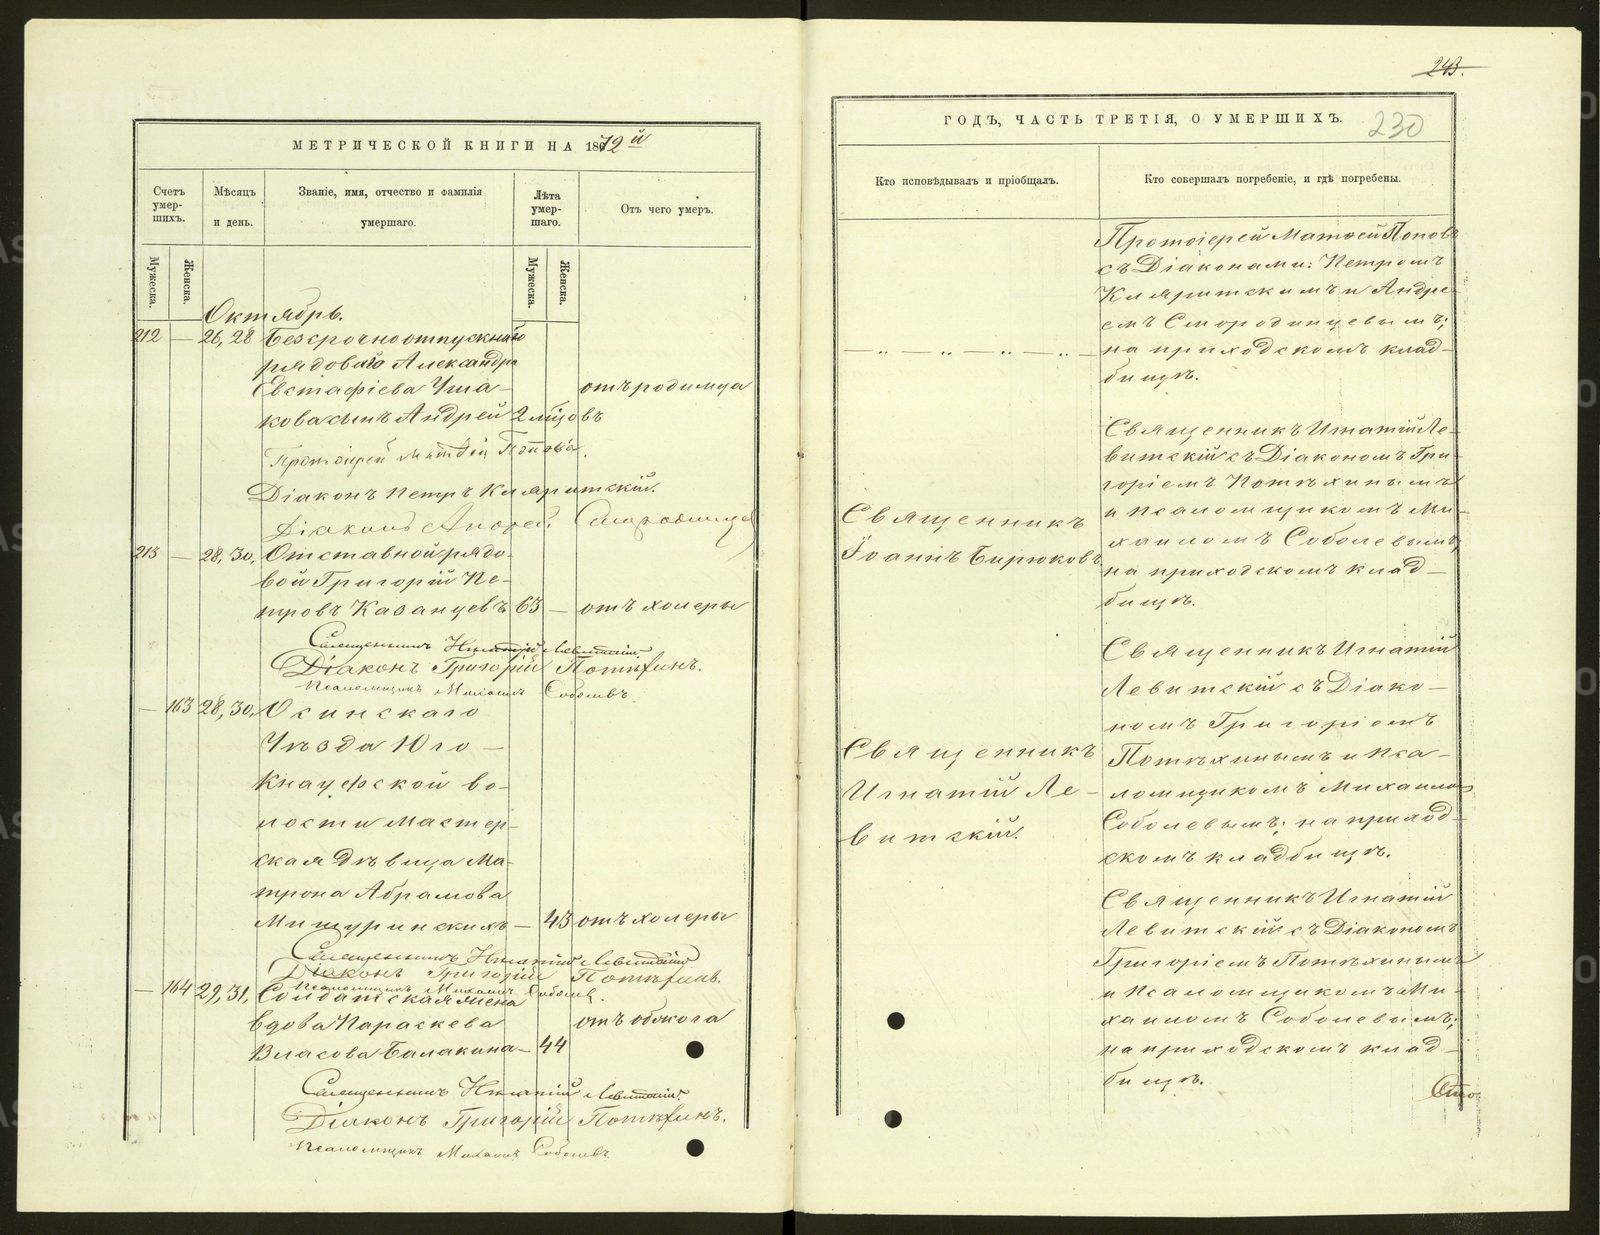 МЕТРИЧЕСКОЙ КНИГИ НА 1872й
Счетъ умер-шихъ.
Мѣсяцъ и день.
Званіе, имя, отчество и фамилія умершаго.
Лѣта умер-шаго.
Отъ чего умеръ.
Мужеска.
Женска.
Мужеска.
Женска.
Октябрь.
212 — 26, 28 Безсрочноотпускнаго
рядоваго Александра
Евстафіева Уша- отъ родимца
кова сынъ Андрей 2 мѣсяцовъ
Протоіерей Матѳей Поповъ.
Діаконъ Петръ Кляритскій.
Діаконъ Андрей Смородинцевъ
213 — 28, 30, Отставной рядо-
вой Григорій Пе-
тровъ Казанцевъ 63 — отъ холеры
Священникъ Игнатій Левитскій.
Діаконъ Григорій Потѣхинъ.
Псаломщикъ Михаилъ Соболевъ
— 163 28, 30, Осинскаго
Уѣзда Юго-
Кнауфской во-
лости мастер-
ская дѣвица Ма-
трона Абрамова
Мичуринскихъ — 43 отъ холеры
Священникъ Игнатій Левитскій
Діаконъ Григорій Потѣхинъ.
Псаломщикъ Михаилъ Соболевъ.
— 164 29, 31, Солдатская жена
вдова Параскева отъ обжога
Власова Балакина — 44
Священникъ Игнатій Левитскій.
Діаконъ Григорій Потѣхинъ.
Псаломщикъ Михаилъ Соболевъ.
243.
ГОДЪ, ЧАСТЬ ТРЕТІЯ, О УМЕРШИХЪ.
230
Кто исповѣдывалъ и пріобщалъ.
Кто совершалъ погребеніе, и гдѣ погребены.
Протоіерей Матѳей Поповъ
съ Діаконами: Петромъ
Кляритскимъ и Андре-
емъ Смородинцевымъ;
— „ — „ — „ — на приходскомъ клад-
бищѣ.
Священникъ Игнатій Ле-
витскій съ Діакономъ Гри-
горіемъ Потѣхинымъ
Священникъ и псаломщикомъ Ми-
Іоаннъ Бирюковъ хаиломъ Соболевымъ;
на приходскомъ клад-
бищѣ.
Священникъ Игнатій
Левитскій съ Діако-
номъ Григоріемъ
Священникъ Потѣхинымъ и Пса-
Игнатій Ле- ломщикомъ Михаиломъ
витскій. Соболевымъ; на приход-
скомъ кладбищѣ.
Священникъ Игнатій
Левитскій съ Діакономъ
Григоріемъ Потѣхинымъ
и Псаломщикомъ Ми-
хаиломъ Соболевымъ;
на приходскомъ клад-
бищѣ.